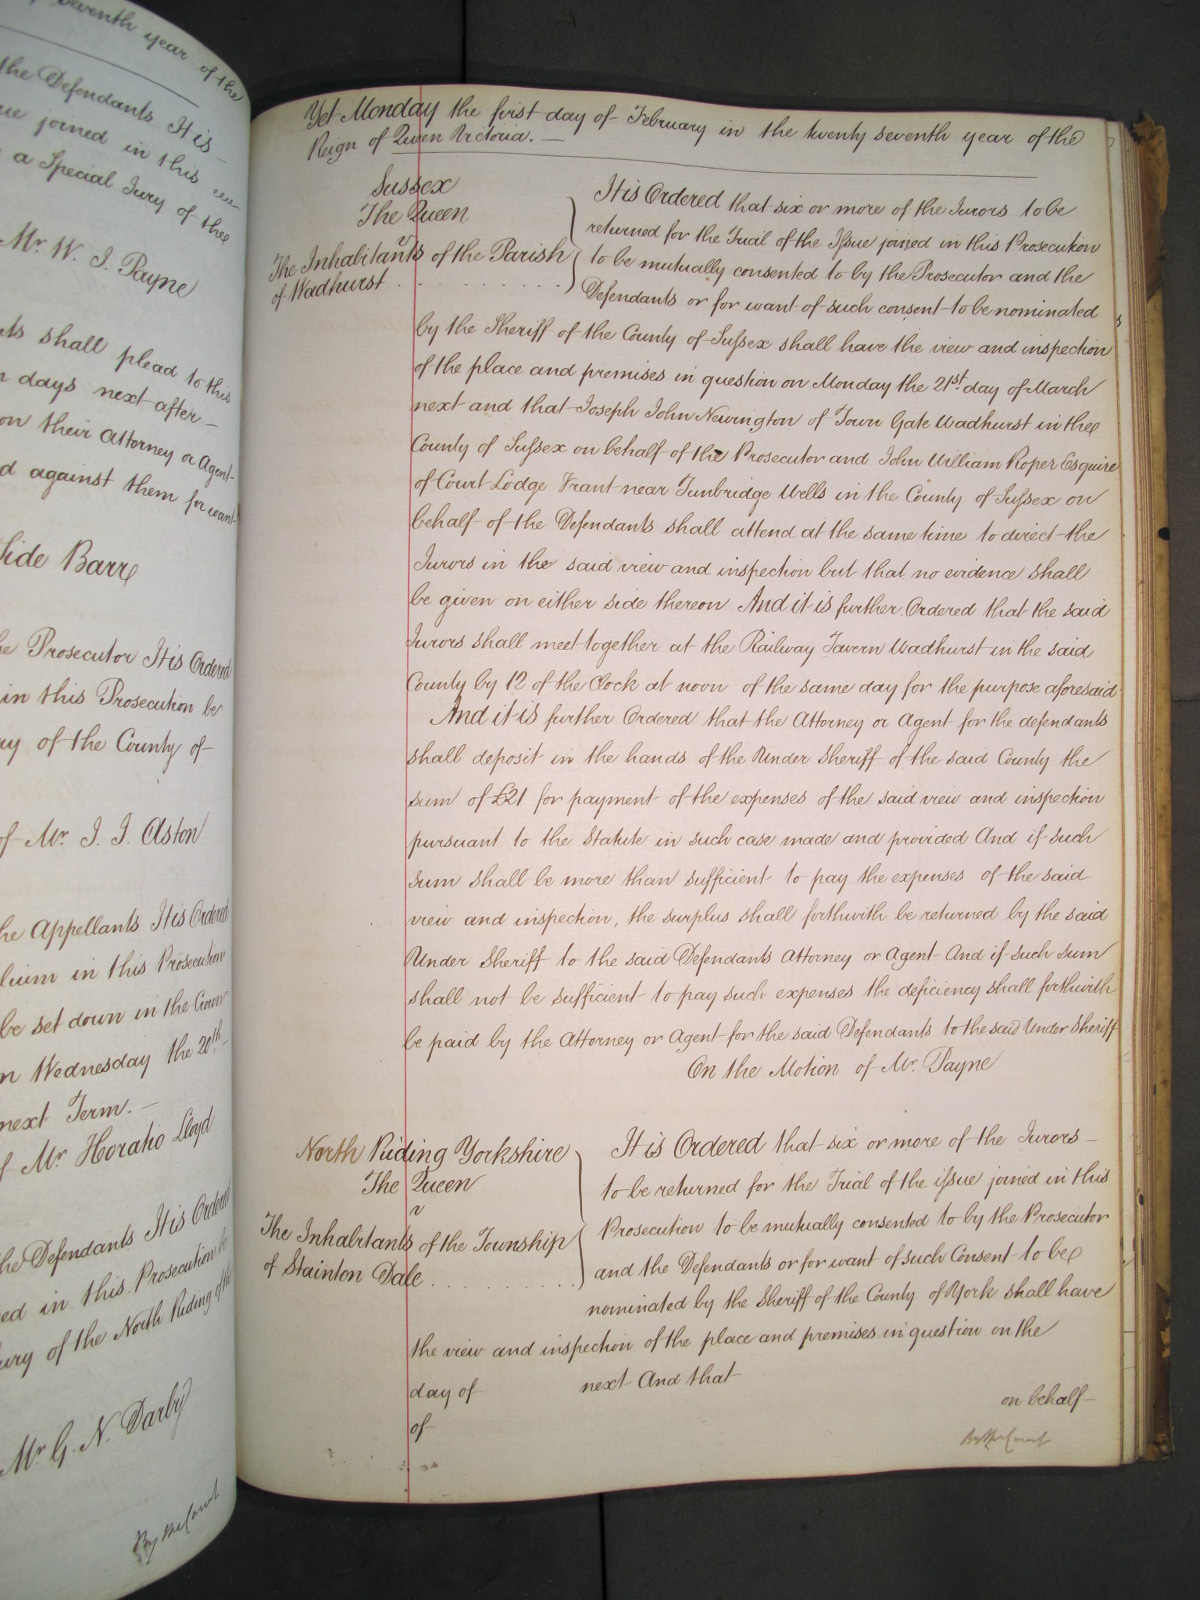 seventh year of the
the Defendants It is
joined in this
a Special Jury of the
Mr. W. J. Payne
shall plead to this
days next after
on their Attorney or Agent
against them for want
Side Barr
Prosecutor It is Ordered
in this Prosecution be
of the County of
of Mr. J. J. Aston
the Appellants It is Ordered
in this Prosecution
be set down in the Crown
Wednesday the 20th
next Term.
Mr. Horatio Lloyd
the Defendants It is Ordered
in this Prosecution
of the North Riding of the
Mr. G. N. Darby
By the Court
Yet Monday the first day of February in the twenty seventh year of the
Reign of Queen Victoria. —
Sussex
The Queen
v
The Inhabitants of the Parish
of Wadhurst
It is Ordered that six or more of the Jurors to be
returned for the Trial of the Issue joined in this Prosecution
to be mutually consented to by the Prosecutor and the
Defendants or for want of such consent to be nominated
by the Sheriff of the County of Sussex shall have the view and inspection
of the place and premises in question on Monday the 21st. day of March
next and that Joseph John Newington of Town Gate Wadhurst in the
County of Sussex on behalf of the Prosecutor and John William Roper Esquire
of Court Lodge Frant near Tunbridge Wells in the County of Sussex on
behalf of the Defendants shall attend at the same time to direct the
Jurors in the said view and inspection but that no evidence shall
be given on either side thereon And it is further Ordered that the said
Jurors shall meet together at the Railway Tavern Wadhurst in the said
County by 12 of the Clock at noon of the same day for the purpose aforesaid
And it is further Ordered that the Attorney or Agent for the defendants
shall deposit in the hands of the Under Sheriff of the said County the
sum of £21 for payment of the expenses of the said view and inspection
pursuant to the Statute in such case made and provided And if such
sum shall be more than sufficient to pay the expenses of the said
view and inspection, the surplus shall forthwith be returned by the said
Under Sheriff to the said Defendants Attorney or Agent And if such sum
shall not be sufficient to pay such expenses the deficiency shall forthwith
be paid by the Attorney or Agent for the said Defendants to the said Under Sheriff
On the Motion of Mr. Payne
North Riding Yorkshire
The Queen
v
The Inhabitants of the Township
of Stainton Dale
It is Ordered that six or more of the Jurors —
to be returned for the Trial of the issue joined in this
Prosecution to be mutually consented to by the Prosecutor
and the Defendants or for want of such Consent to be
nominated by the Sheriff of the County of York shall have
the view and inspection of the place and premises in question on the
day of next And that
of on behalf
By the Court